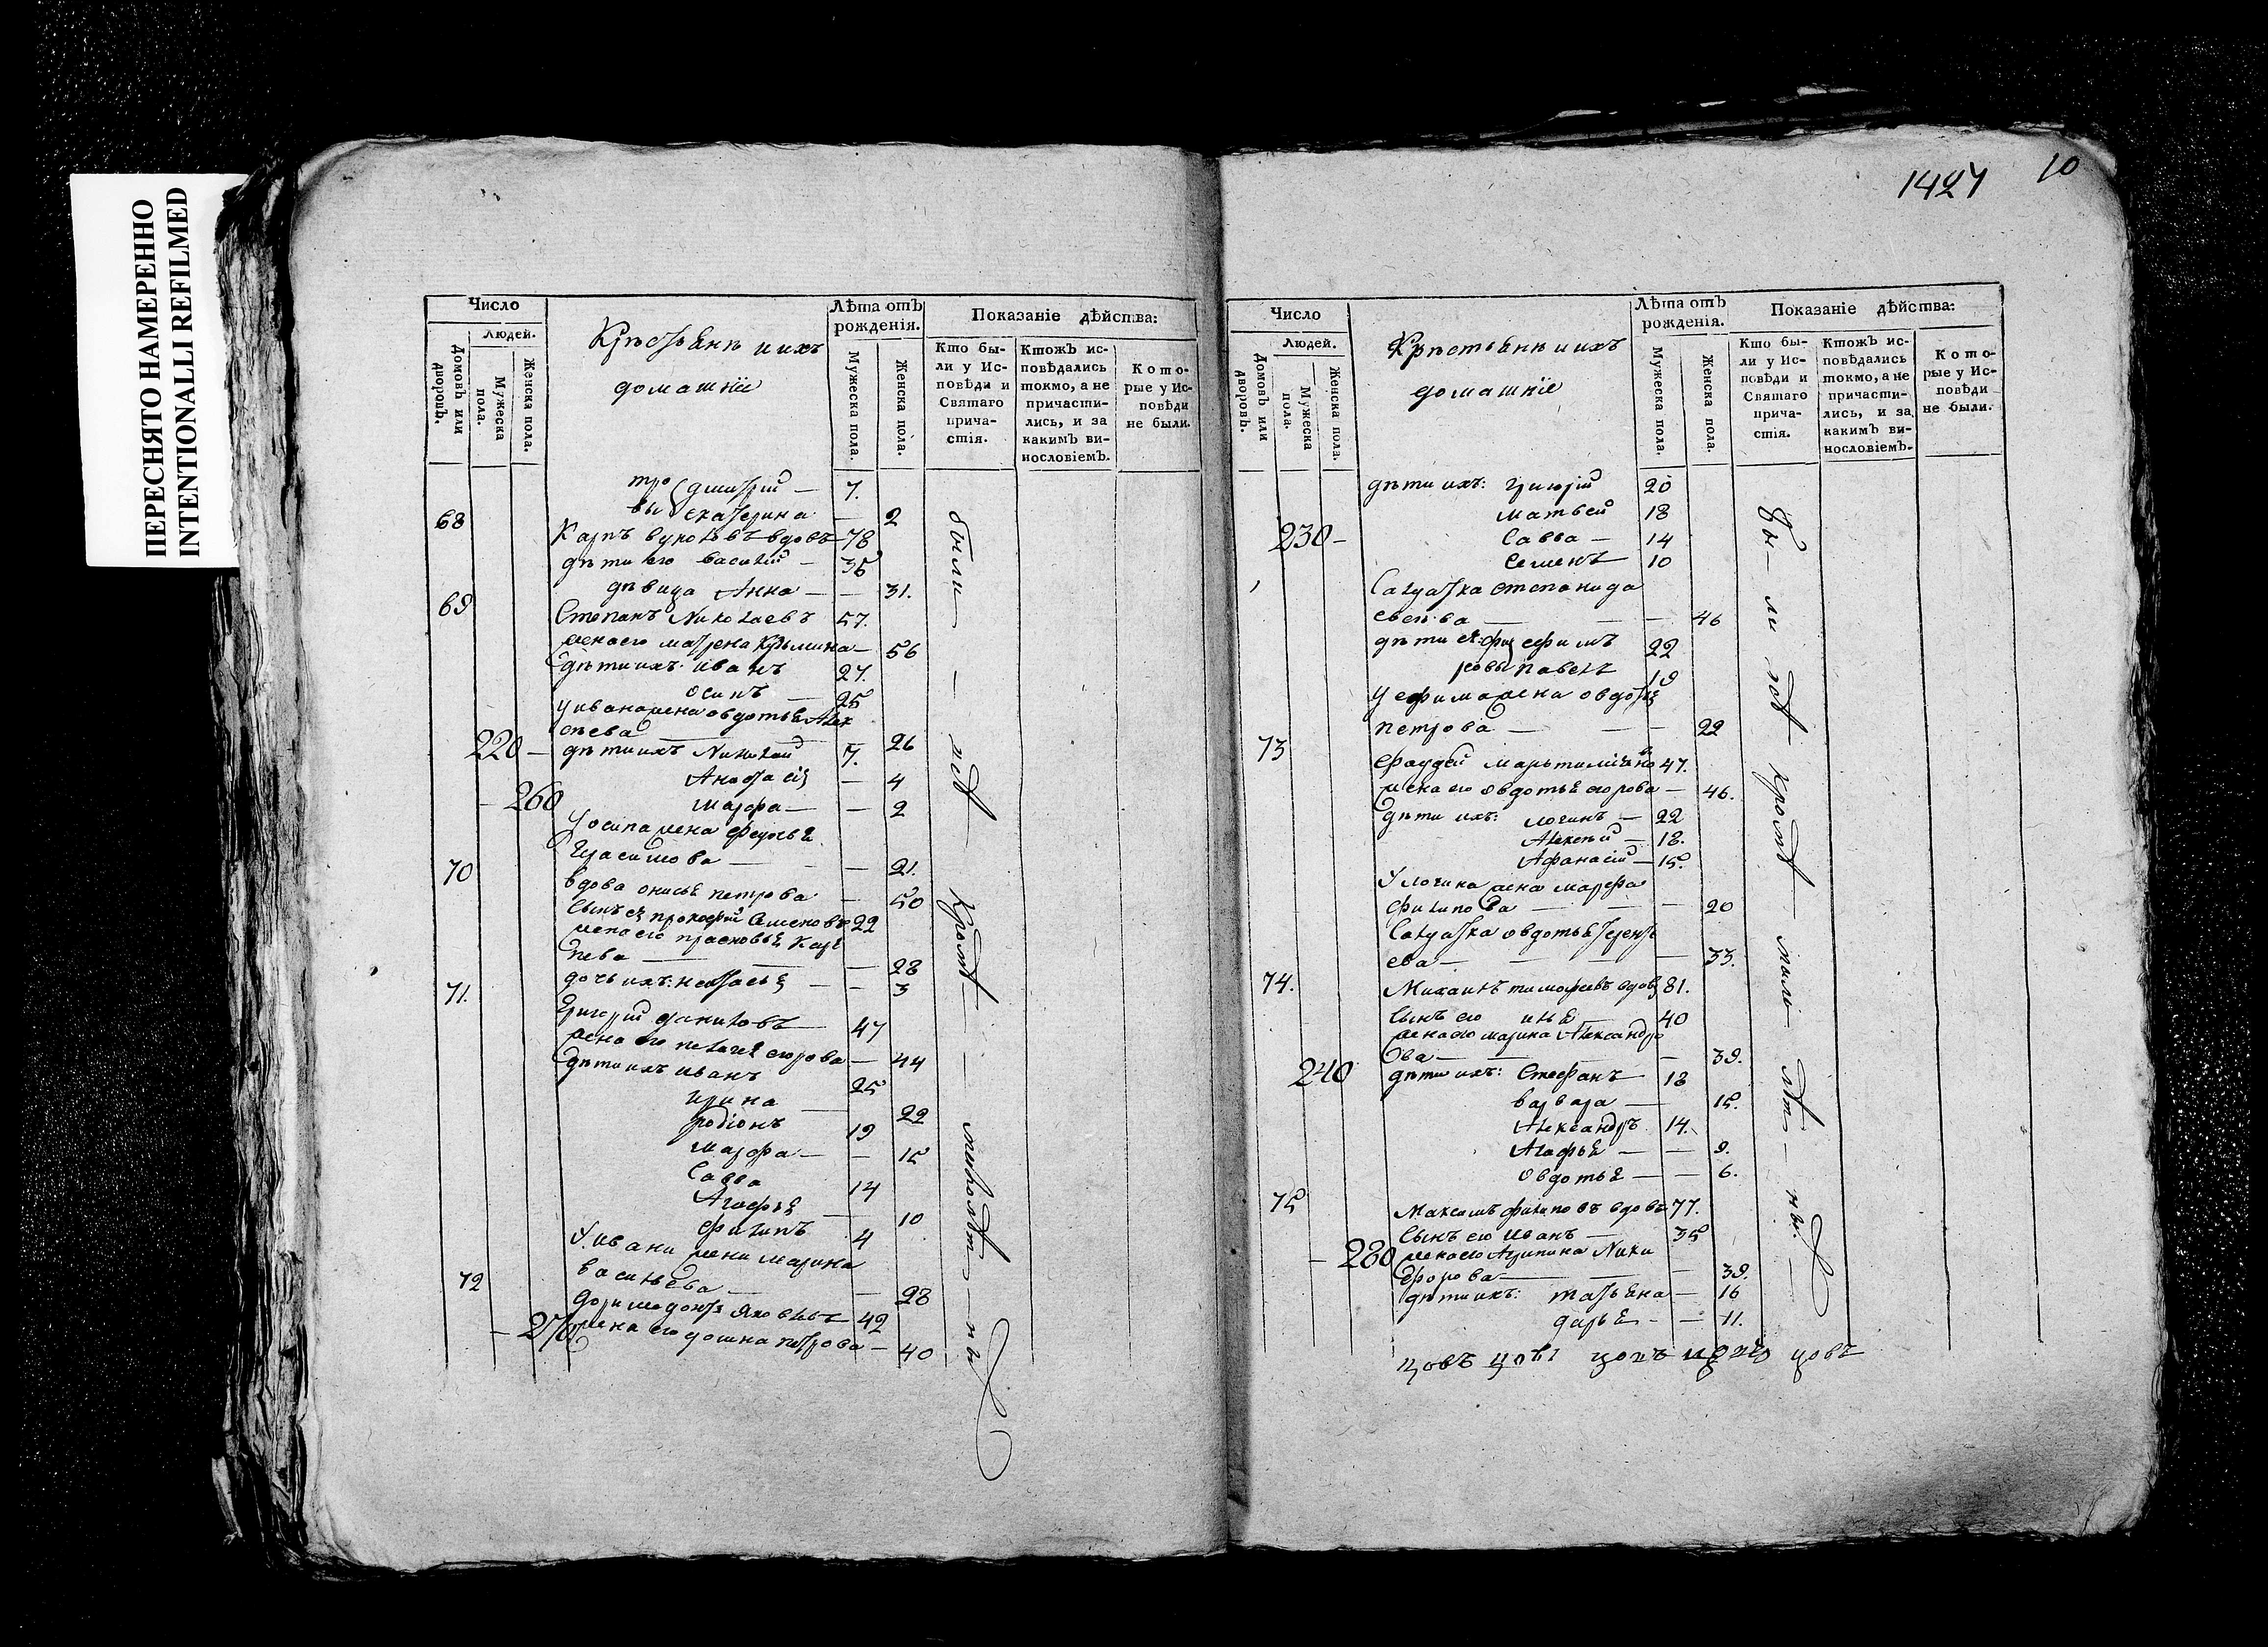 ПЕРЕСНЯТО НАМЕРЕННО
INTENTIONALLI REFILMED
Число
Людей.
Домовъ или дворовъ.
Мужеска пола.
Женска пола.
Крестьяне и ихъ
домашніе
Лѣта отъ рожденія.
Мужеска пола.
Женска пола.
Показаніе дѣйства:
Кто были у Исповѣди и Святаго причастія.
Ктожъ исповѣдались токмо, а не причастились, и за какимъ винословіемъ.
Которые у Исповѣди не были.
дмитрій — 7.
екатерина — 2
68 Карпъ вуколовъ вдовъ 78
дѣти его василій — 35
дѣвица Анна — — 31.
69 Степанъ Николаевъ 57.
жена его матрена — 56
дѣти ихъ иванъ 27.
осипъ — 25
у ивана жена овдотья Алек
сѣева — 26
220 — дѣти ихъ Николай 7.
Анастасія — 4
— 260 марфа — — 2
у осипа жена федосья
Герасимова — — 21.
70 вдова онисья петрова — 50
сынъ ея прокофій Семеновъ 22
жена его прасковья Кар
пева — — 28
дочь ихъ: настасья — — 3
71. Григорій даниловъ 47
жена его пелагея егорова — 44
дѣти ихъ иванъ 25
ирина — 22
родіонъ 19
марфа — — 15
Савва 14
Агафья — 10
филипъ 4
у ивана жена марина
васильева — — 28
72 доримедонтъ Яковлевъ 42
— 270 жена его домна петрова — 40
были — — лѣ — кромѣ — — малолѣт — ны
1427 10
Число
Людей.
Домовъ или дворовъ.
Мужеска пола.
Женска пола.
Крестьяне и ихъ
домашніе
Лѣта отъ рожденія.
Мужеска пола.
Женска пола.
Показаніе дѣйства:
Кто были у Исповѣди и Святаго причастія.
Ктожъ исповѣдались токмо, а не причастились, и за какимъ винословіемъ.
Которые у Исповѣди не были.
дѣти ихъ: григорій 20
матвей 18
230 — Савва — 14
Семенъ 10
Салдатка степанида
евсѣева — — 46
дѣти ея ефимъ 22
павелъ 19
у ефима жена овдотья
петрова — — 22
73 47.
жена его овдотья егорова — 46.
дѣти ихъ: логинъ — 22
Алексѣй — 18.
Афанасій — 15.
у логина жена марфа
филипова — — — 20
Салдатка овдотья
ева — — — — 33.
74. Михаилъ тимофеевъ вдовъ 81.
Сынъ его илья 40
жена его марина Александро
ва — — — 39.
240 дѣти ихъ: Стефанъ — 18
варвара — 15.
Александръ 14.
Агафья — — 9.
овдотья — — 6.
75 Максимъ филиповъ вдовъ 77.
Сынъ его иванъ — 35
— 280 жена его Агрипина Ники
форова — — — 39.
дѣти ихъ: татьяна — 16
дарья — — 11.
бы — ли — кромѣ — мало — лѣт — ны. —